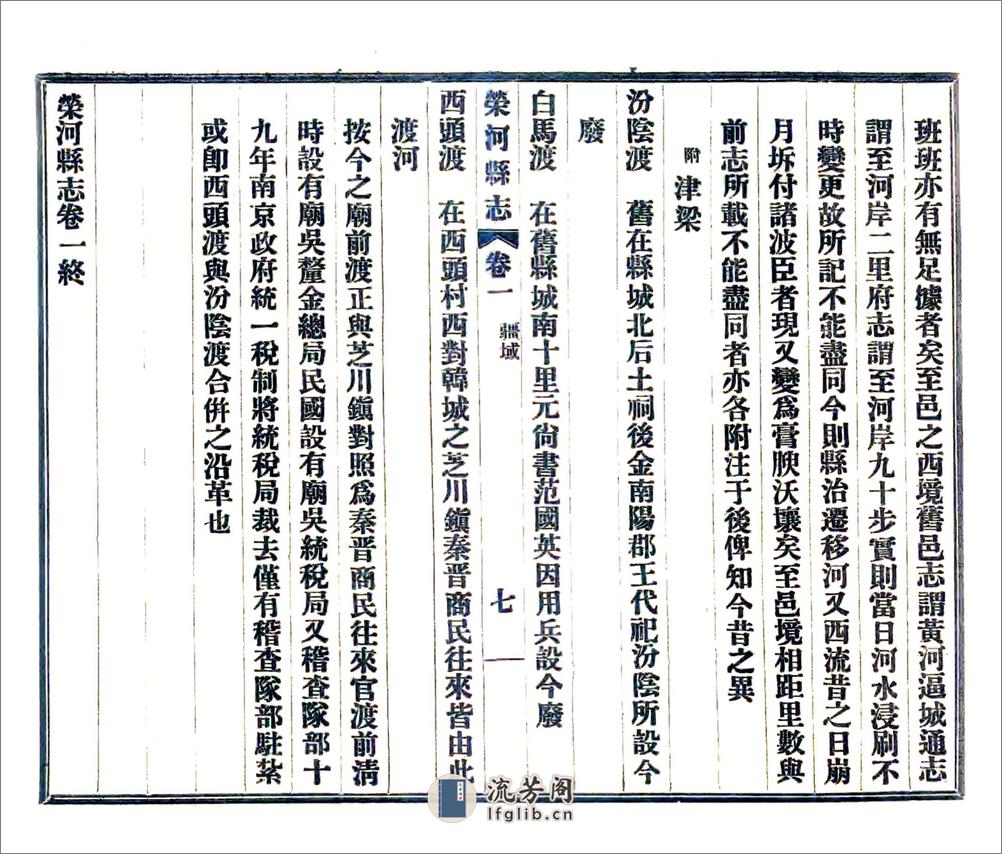 班班亦有無足據者矣至邑之西境舊邑志謂黃河逼城通志
謂至河岸二里府志謂至河岸九十步實則當日河水浸刷不
時變更故所記不能盡同今則縣治遷移河又西流昔之日崩
月坼付諸波臣者現又變爲膏腴沃壤矣至邑境相距里數與
前志所載不能盡同者亦各附注于後俾知今昔之異
附 津梁
汾陰渡 舊在縣城北后土祠後金南陽郡王代祀汾陰所設今
廢
白馬渡 在舊縣城南十里元尙書范國英因用兵設今廢
榮河縣志 卷一 疆域 七
西頭渡 在西頭村西對韓城之芝川鎭秦晋商民往來皆由此
渡河
按今之廟前渡正與芝川鎭對照爲秦晋商民往來官渡前清
時設有廟吳釐金總局民國設有廟吳統稅局又稽查隊部十
九年南京政府統一稅制將統稅局裁去僅有稽查隊部駐紮
或卽西頭渡與汾陰渡合倂之沿革也
榮河縣志卷一終
流芳阁
lfglib.cn